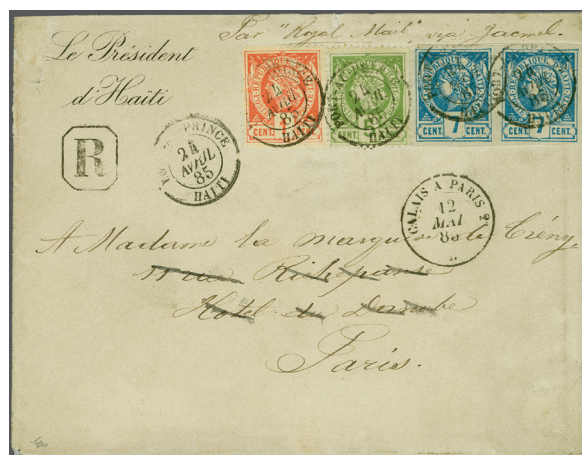 Par "Royal Mail", via Jacmel.
Le Président
d'Haïti
R
PRINCE
24
AVRIL
85
HAITI
CENT.
CENT.
CENT. 7 CENT.
CENT. 7 CENT.
CALAIS A PARIS
12
MAI
85
A Madame la marquise de Crény
11 rue Richepanse
Hotel du Danube
Paris.